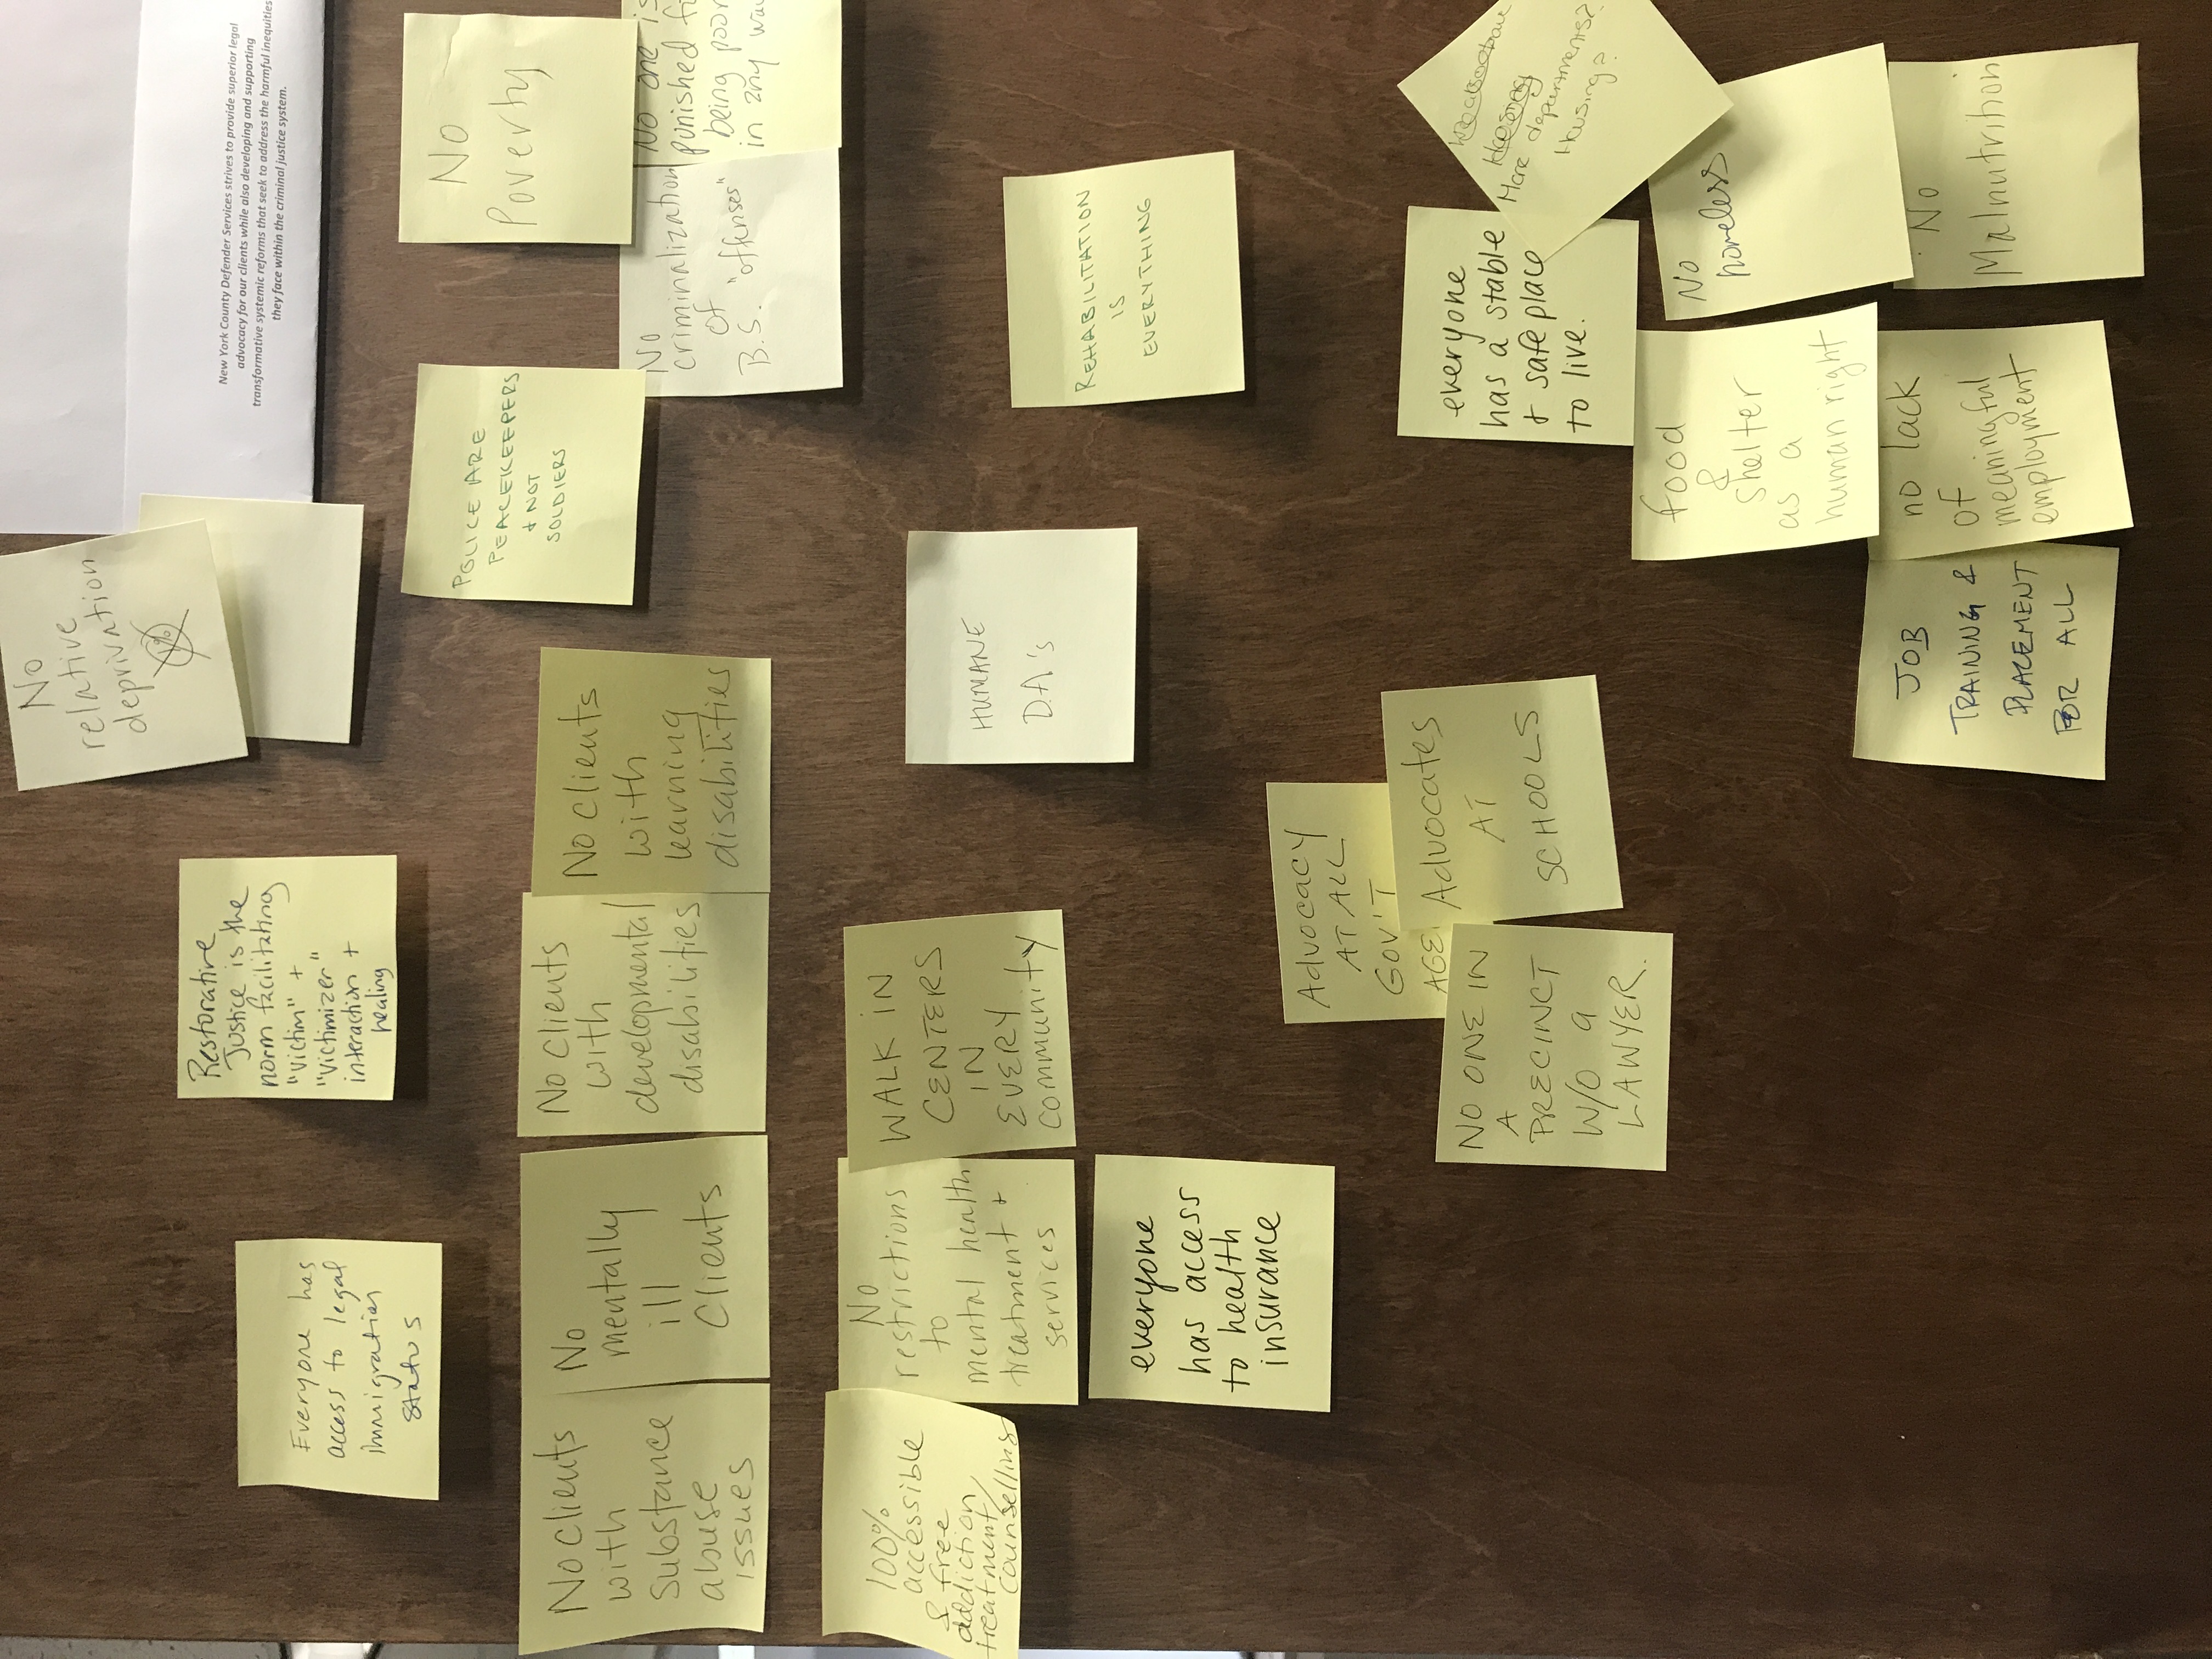 No
relative
deprivation
1%
New York County Defender Services strives to provide superior legal
advocacy for our clients while also developing and supporting
transformative systemic reforms that seek to address the harmful inequities
they face within the criminal justice system.
Everyone has
access to legal
immigration
status
Restorative
Justice is the
norm facilitating
"victim" +
"victimizer"
interaction +
healing
POLICE ARE
PEACEKEEPERS
& NOT
SOLDIERS
No
Poverty
No clients
with
substance
abuse
issues
No
mentally
ill
Clients
No clients
with
developmental
disabilities
No clients
with
learning
disabilities
No
criminalization
of
B.S. "offenses"
No one is
punished
being poor
in any
100%
accessible
& free
addiction
treatment/
counselling
No
restrictions
to
mental health
treatment +
services
WALK IN
CENTERS
IN
EVERY
community
HUMANE
D.A's
REHABILITATION
IS
EVERYTHING
everyone
has access
to health
insurance
Advocacy
AT ALL
GOV'T
AGE
Advocates
AT
SCHOOLS
NO ONE IN
A
PRECINCT
W/O a
LAWYER.
everyone
has a stable
& safe place
to live.
Housing
More departments?
Housing?
food
&
shelter
as a
human right
No
homeless
JOB
TRAINING &
PLACEMENT
FOR ALL
no lack
of
meaningful
employment
No
Malnutrition